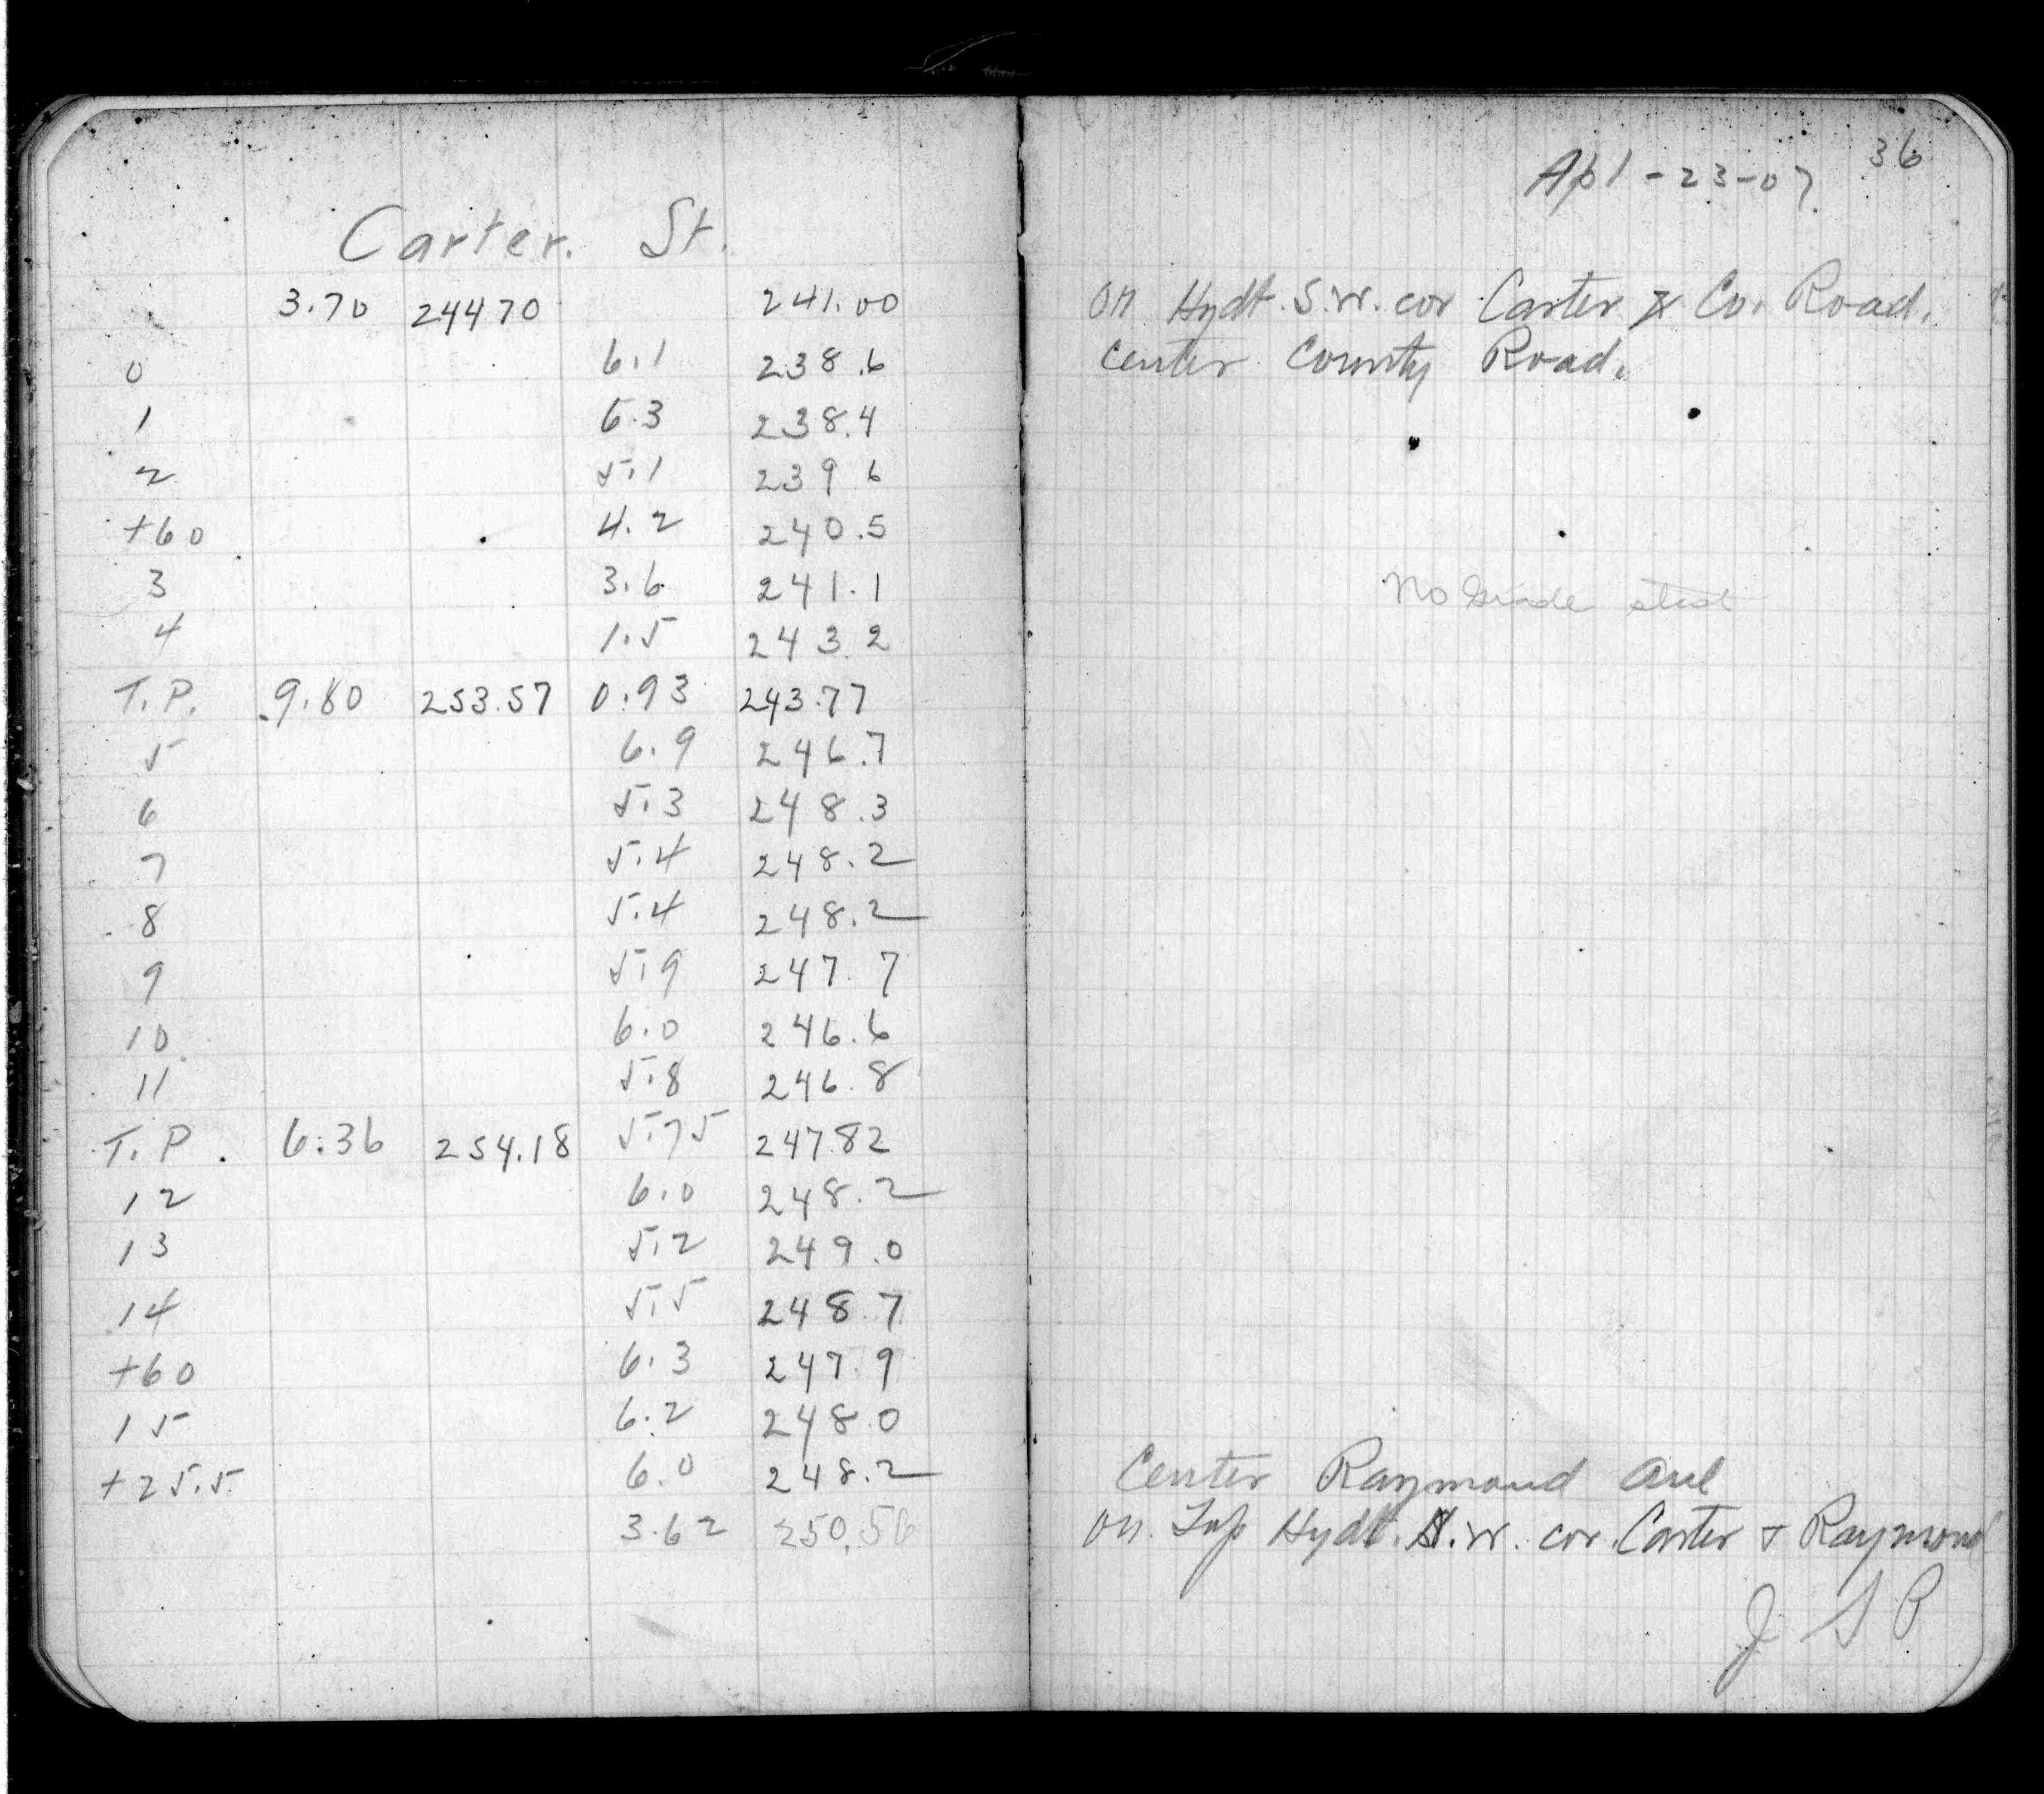 Carter. St.
3.70 24470 241.00
0 6.1 238.6
1 6.3 238.4
2 5.1 239 6
+60 4.2 240.5
3 3.6 241.1
4 1.5 243.2
T.P. 9.80 253.57 0.93 243.77
5 6.9 246.7
6 5.3 248.3
7 5.4 248.2
8 5.4 248.2
9 5.9 247.7
10 6.0 246.6
11 5.8 246.8
T.P. 6.36 254.18 5.75 24782
12 6.0 248.2
13 5.2 249.0
14 5.5 248.7
+60 6.3 247.9
15 6.2 248.0
+25.5 6.0 248.2
3.62 250.56
36
Apl-23-07
on Hydt. S.W. cor Carter & Co. Road.
Center County Road.
No Grade
Center Raymond Ave
on Top Hydt. .W. cor. Carter & Raymond
J S P